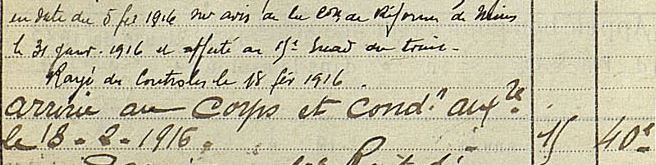 en date du 5 fév 1916 sur avis de la Con de Réforme de Nimes
le 31 janv. 1916 et affecté au 15e Escad du train -
Rayé des Controles le 18 fév 1916.
arrivé au Corps et Condr auxre
le 18-2-1916. 15 40e